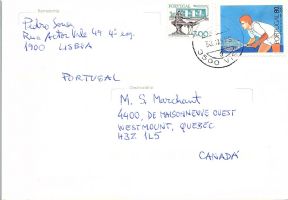 Remetente
Pedro Sousa
Rua Actor Vale 49 4º esq.
1900 LISBOA
PORTUGAL
PORTUGAL
7.00
PORTUGAL
Destinatário
M. S. Marchant
4400, DE MAISONNEUVE OUEST
WESTMOUNT, QUEBEC
H3Z 1L5
CANADÁ